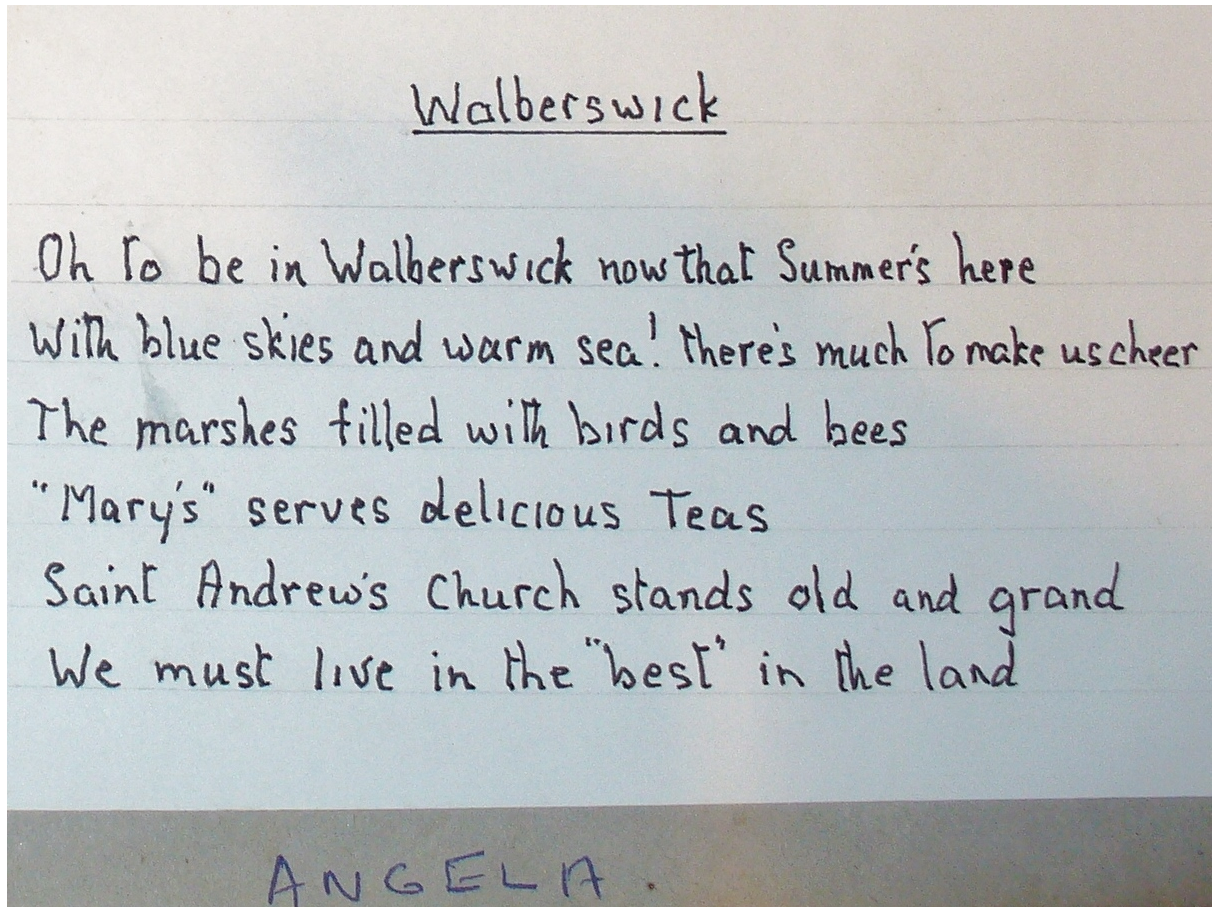 Walberswick
Oh To be in Walberswick now that Summer's here
With blue skies and warm sea! there's much To make us cheer
The marshes filled with birds and bees
"Mary's" serves delicious Teas
Saint Andrew's Church stands old and grand
We must live in the "best" in the land
ANGELA.